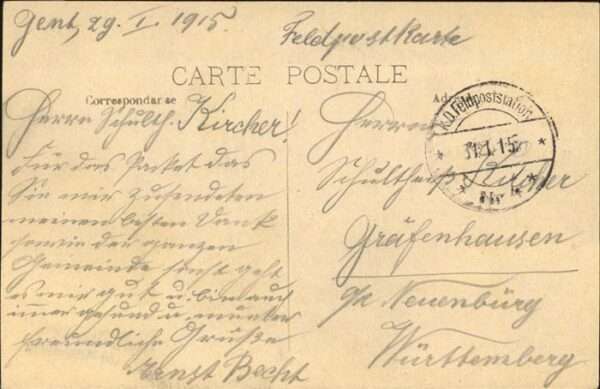 Gent, 29. I. 1915.
Feldpostkarte
CARTE POSTALE
Correspondance
Herrn Schulth. Kircher!
Für das Packet das
Sie mir zusendeten
meinen besten Dank
sowie der ganzen
Gemeinde sonst geht
es mir gut u. bin auch
gesund u. munter
freundliche Grüße
Ernst Becht
K.D. Feldpoststation
31.1.15
Nr. 4
Herrn
Schultheiß Kircher
Gräfenhausen
Neuenbürg
Württemberg